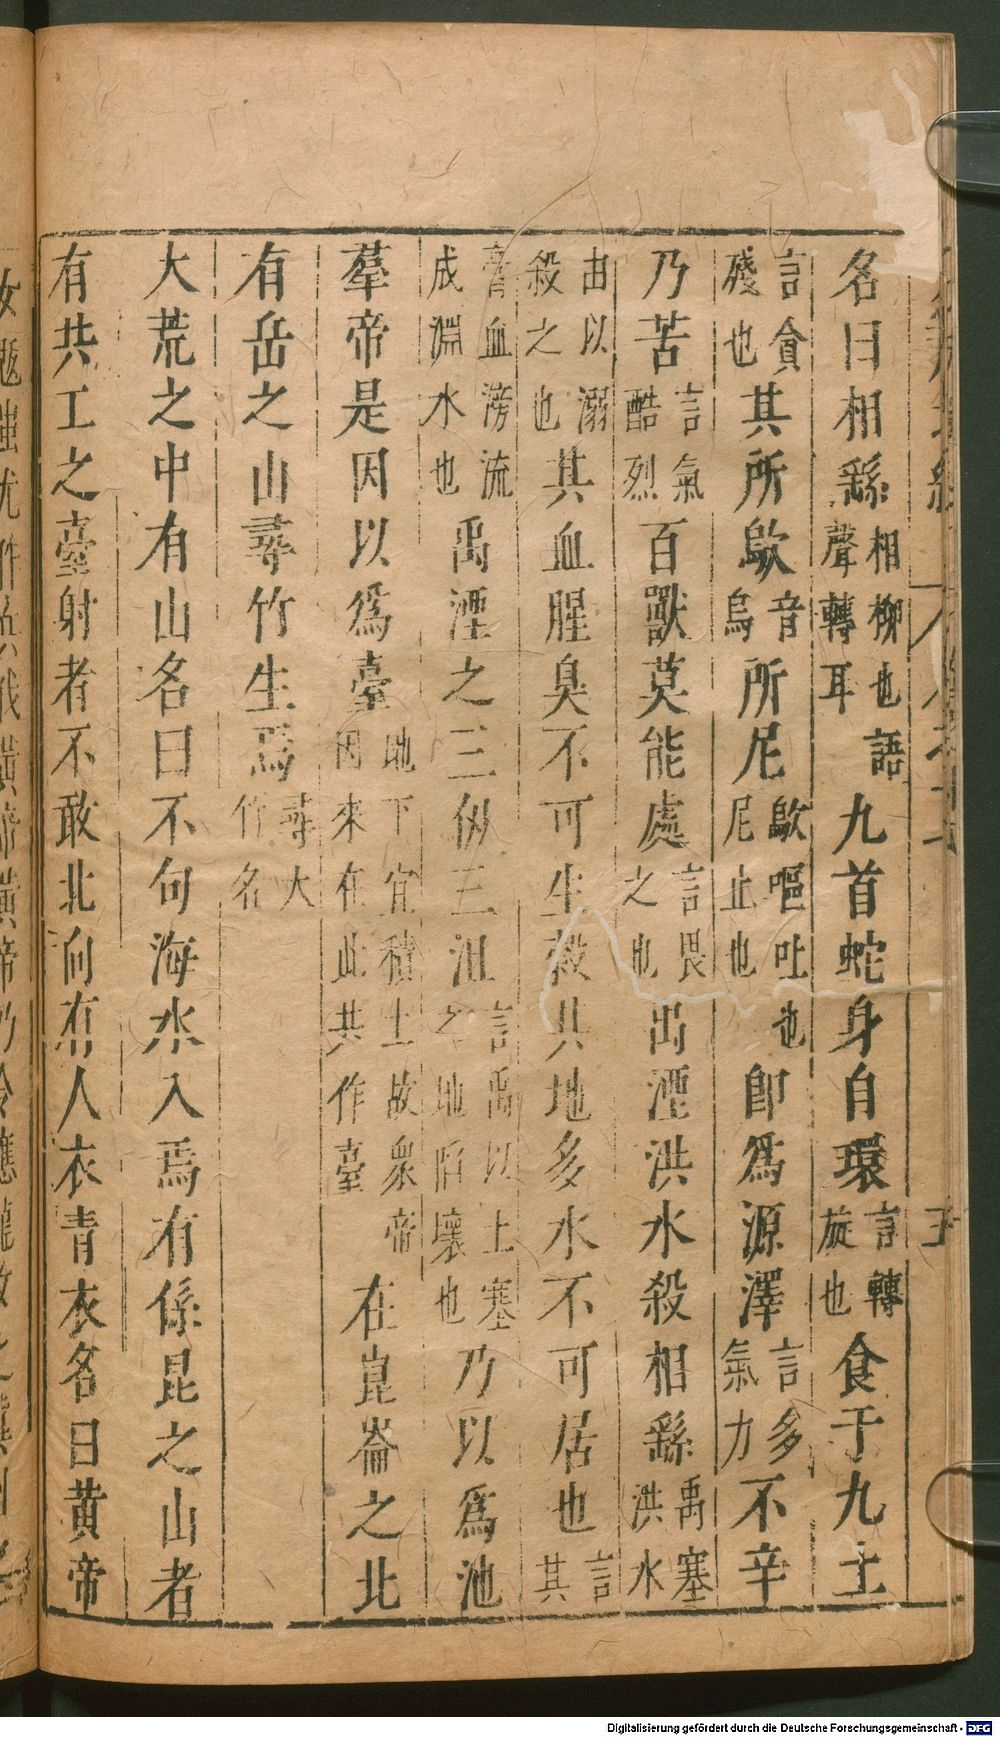 名曰相繇相柳也語聲轉耳九首蛇身自環言轉旋也食于九土
言貪殘也其所歍音烏所尼歍嘔吐也尼止也即爲源澤言多氣力不辛
乃苦言氣酷烈百獸莫能處言畏之也禹湮洪水殺相繇禹塞洪水
由以溺殺之也其血腥臭不可生穀其地多水不可居也言其
膏血滂流成淵水也禹湮之三仞三沮言禹以土塞之地陷壞也乃以爲池
羣帝是因以爲臺地下宜積土故衆帝因來在此共作臺在崑崙之北
有岳之山尋竹生焉尋大竹名
大荒之中有山名曰不句海水入焉有係昆之山者
有共工之臺射者不敢北向有人衣青衣名曰黄帝
Digitalisierung gefördert durch die Deutsche Forschungsgemeinschaft - DFG